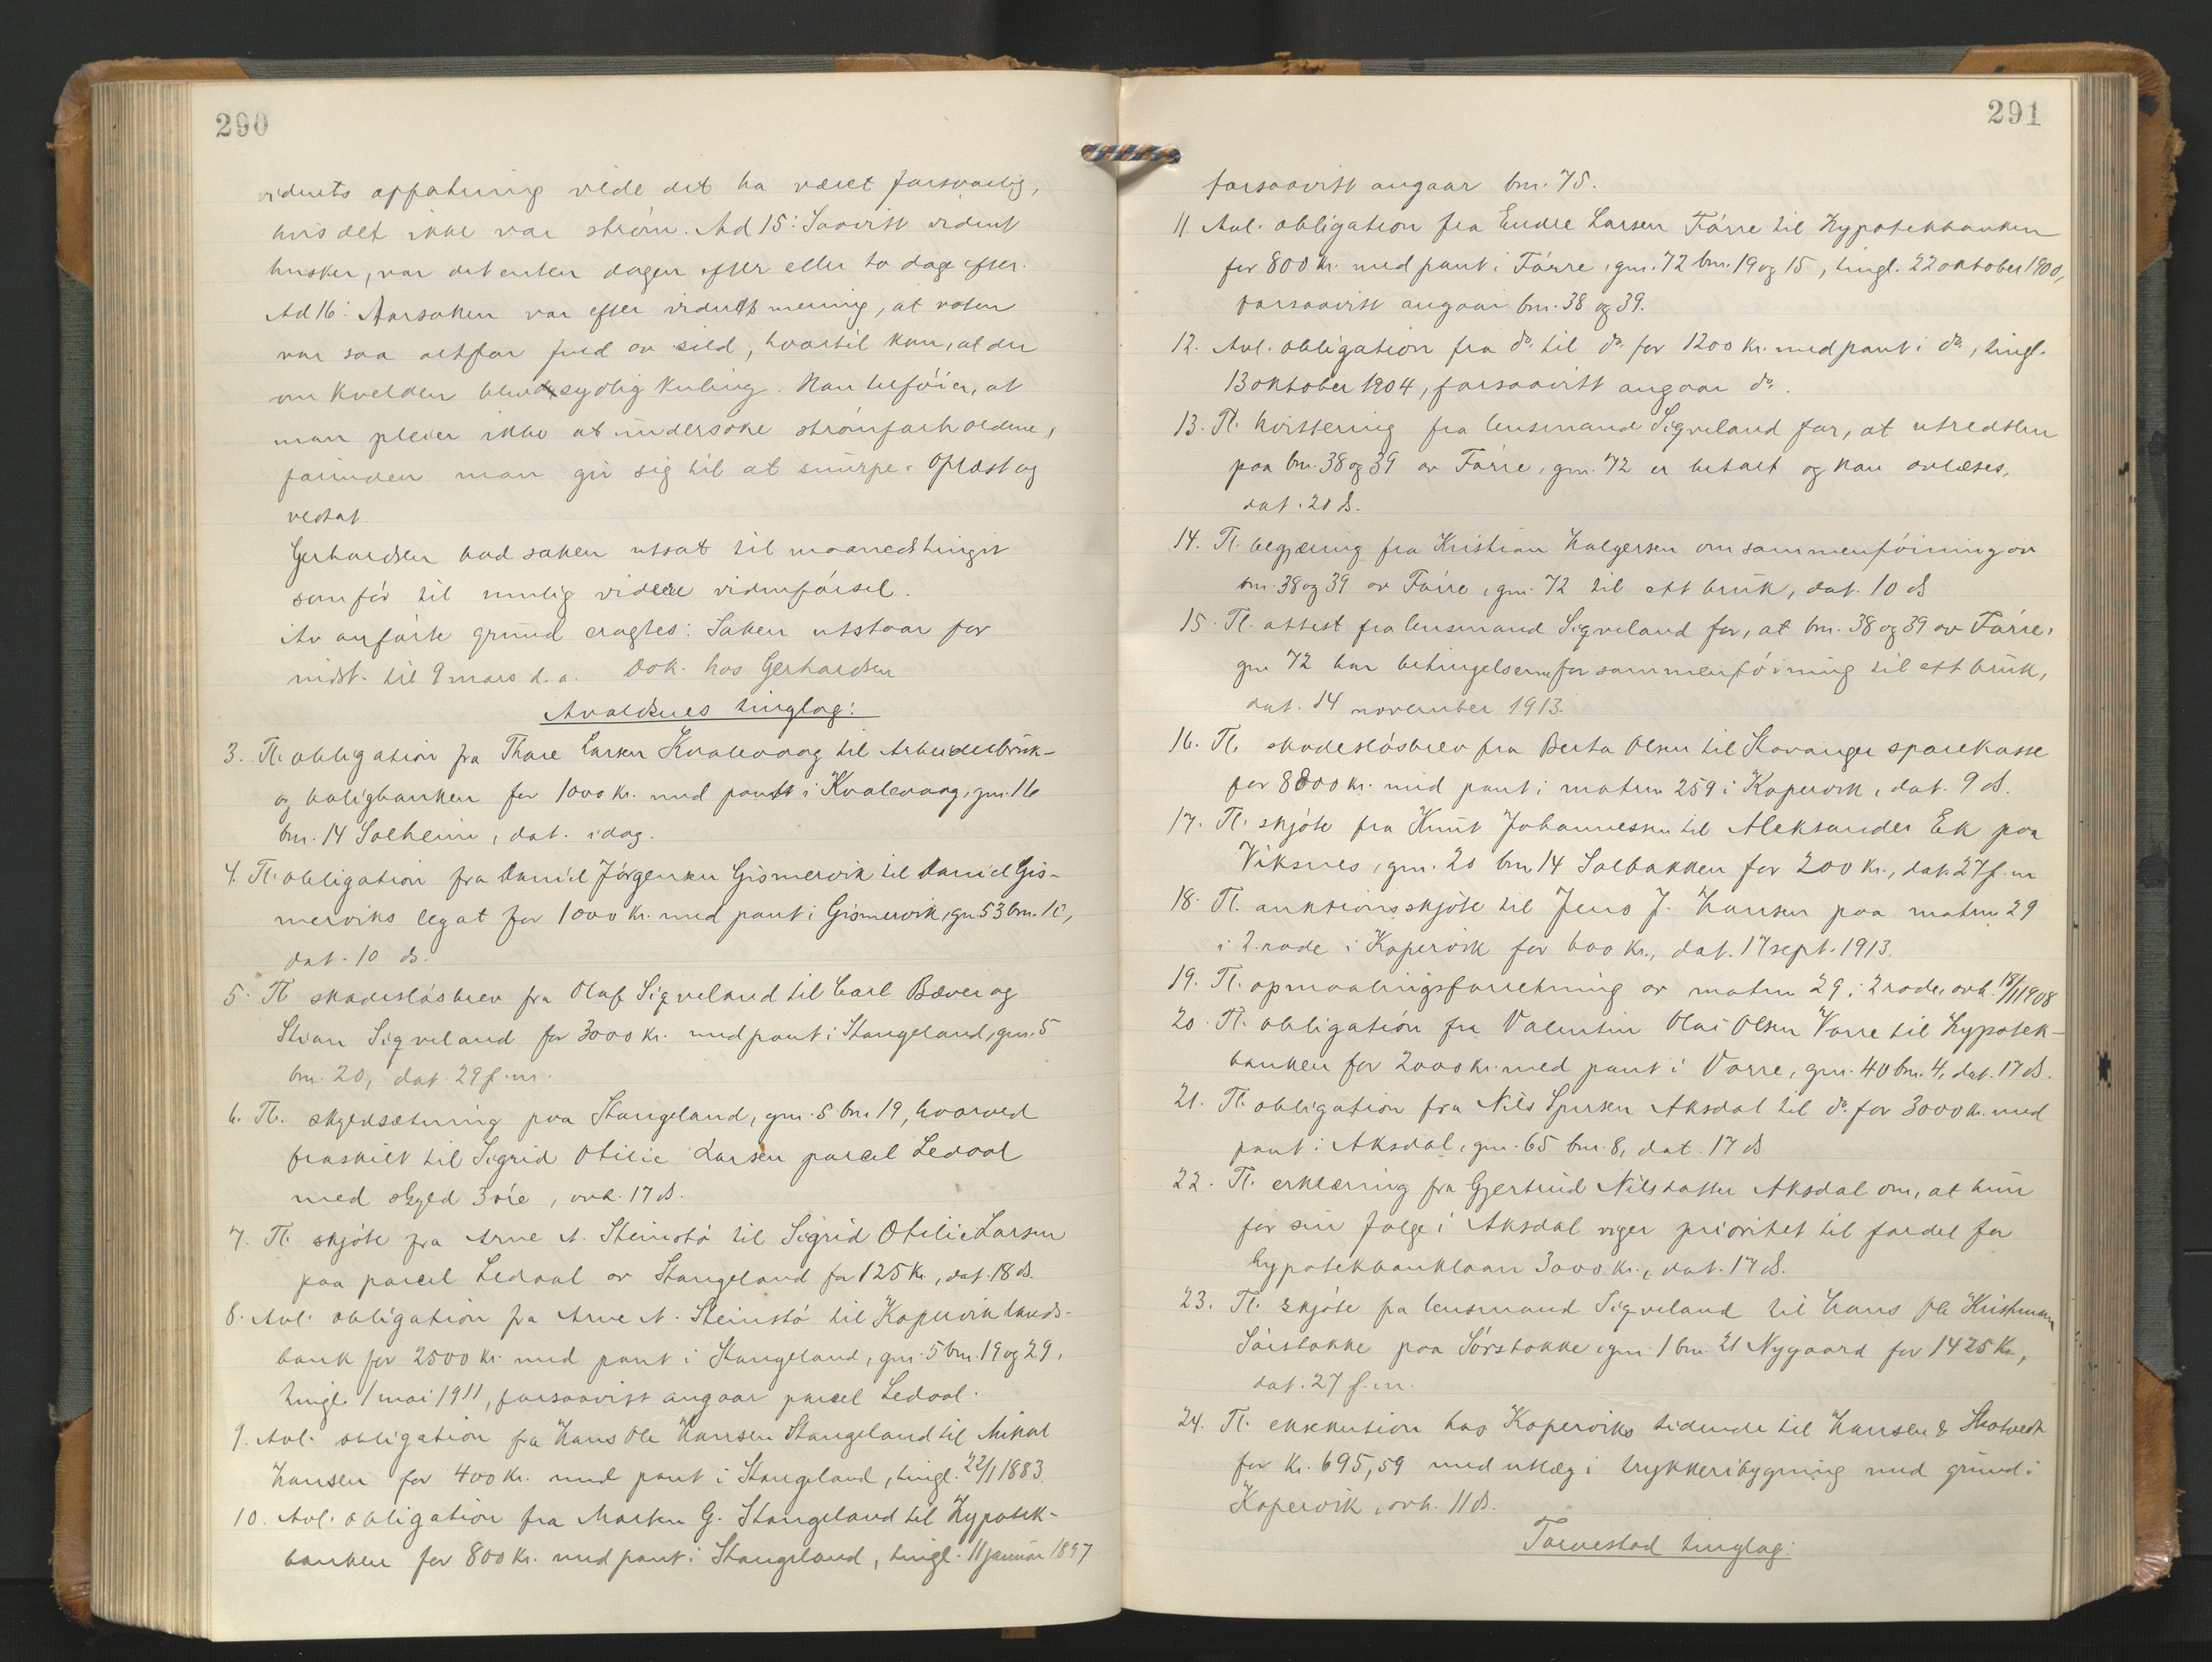 290
vidnets opfatning vilde det ha været forsvarlig,
hvis det ikke var strøm. Ad 15: Saavitt vidnet
husker, var det enten dagen efter eller to dage efter.
Ad 16: Aarsaken var efter vidnets mening, at noten
var saa altfor fuld av sild, hvortil kom, at der
om kvelden blev sydlig kuling. Han tilføier, at
man pleier ikke at undersøke strømforholdene,
førinden man gir sig til at snurpe. Oplæst og
vedtat.
Gerhardsen bad saken utsat til maanedstinget
som før til mulig videre vidneførsel.
Av anførte grund eragtes: Saken utstaar for
midt. til 9 mars d. a. Dok. hos Gerhardsen
Avaldsnes tinglag:
3. Tl. obligation fra Thore Larsen Kvalevaag til Arbeiderbruk-
og boligbanken for 1000 kr. med pant i Kvalevaag, gnr. 116
bnr. 14 Solheim, dat. idag.
4. Tl. obligation fra Daniel Jørgensen Gismervik til Daniel Gis-
merviks legat for 1000 kr. med pant i Gismervik, gnr. 53 bnr. 10,
dat. 10 ds.
5. Tl. skadesløsbrev fra Olaf Sigveland til Carl Bæver og
Stian Sigveland for 3000 kr. med pant i Stangeland, gnr. 5
bnr. 20, dat. 29 f. m.
6. Tl. skyldsætning paa Stangeland, gnr. 5 bnr. 19, hvorved
fraskilt til Sigrid Otilie Larsen parcel Ledaal
med skyld 3 øre, avh. 17 ds.
7. Tl. skjøte fra Arne N. Steinstø til Sigrid Otilie Larsen
paa parcel Ledaal av Stangeland for 125 kr., dat. 18 ds.
8. Avl. obligation fra Arne N. Steinstø til Kopervik lands-
bank for 2500 kr. med pant i Stangeland, gnr. 5 bnr. 19 og 29,
tingl. 1 mai 1911, forsaavitt angaar parcel Ledaal.
9. Avl. obligation fra Hans Ole Hansen Stangeland til Mikal
Hansen for 400 kr. med pant i Stangeland, tingl. 22/1 1883.
10. Avl. obligation fra Morten G. Stangeland til Hypotek-
banken for 800 kr. med pant i Stangeland, tingl. 11 januar 1897
291
forsaavitt angaar bnr. 75.
11. Avl. obligation fra Endre Larsen Førre til Hypotekbanken
for 800 kr. med pant i Førre, gnr. 72 bnr. 19 og 15, tingl. 22 oktober 1900,
forsaavitt angaar bnr. 38 og 39.
12. Avl. obligation fra do. til do. for 1200 kr. med pant i do., tingl.
13 oktober 1904, forsaavitt angaar do.
13. Tl. kvittering fra lensmand Sigveland for, at utredslen
paa bnr. 38 og 39 av Førre, gnr. 72 er betalt og kan avlæses,
dat. 20 ds.
14. Tl. begjæring fra Kristian Halgersen om sammenføining av
bnr. 38 og 39 av Førre, gnr. 72 til ett bruk, dat. 10 ds
15. Tl. attest fra lensmand Sigveland for, at bnr. 38 og 39 av Førre,
gnr. 72 har betingelserne for sammenføining til ett bruk,
dat. 14 november 1913.
16. Tl. skadesløsbrev fra Berta Olsen til Stavanger sparekasse
for 8000 kr. med pant i matrnr. 259 i Kopervik, dat. 9 ds.
17. Tl. skjøte fra Knut Johannessen til Aleksander Ek paa
Viksnes, gnr. 20 bnr. 14 Solbakken for 200 kr., dat. 27 f. m
18. Tl. auktionsskjøte til Jens J. Hansen paa matrnr. 29
i 2. rode i Kopervik for 600 kr., dat. 17 sept. 1913.
19. Tl. opmaalingsforretning av matrnr. 29 i 2 rode, avh. 18/11 1908
20. Tl. obligation fra Valentin Olai Olsen Vorre til Hypotek-
banken for 2000 kr. med pant i Vorre, gnr. 40 bnr. 4, dat. 17 ds.
21. Tl. obligation fra Nils Sjursen Aksdal til do. for 3000 kr. med
pant i Aksdal, gnr. 65 bnr. 8, dat. 17 ds
22. Tl. erklæring fra Gjertrud Nilsdatter Aksdal om, at hun
for sin følge i Aksdal viger prioritet til fordel for
hypotekbanklaan 3000 kr., dat. 17 ds.
23. Tl. skjøte fra lensmand Sigveland til Hans Ole Kristensen
Sørstokke paa Sørstokke, gnr. 1 bnr. 21 Nygaard for 1425 Kr.,
dat. 27 f. m.
24. Tl. eksekution hos Koperviks tidende til Hansen & Skotvedt
for Kr. 695,59 med utlæg i trykkeribygning med grund i
Kopervik, avh. 11 ds.
Torvestad tinglag: